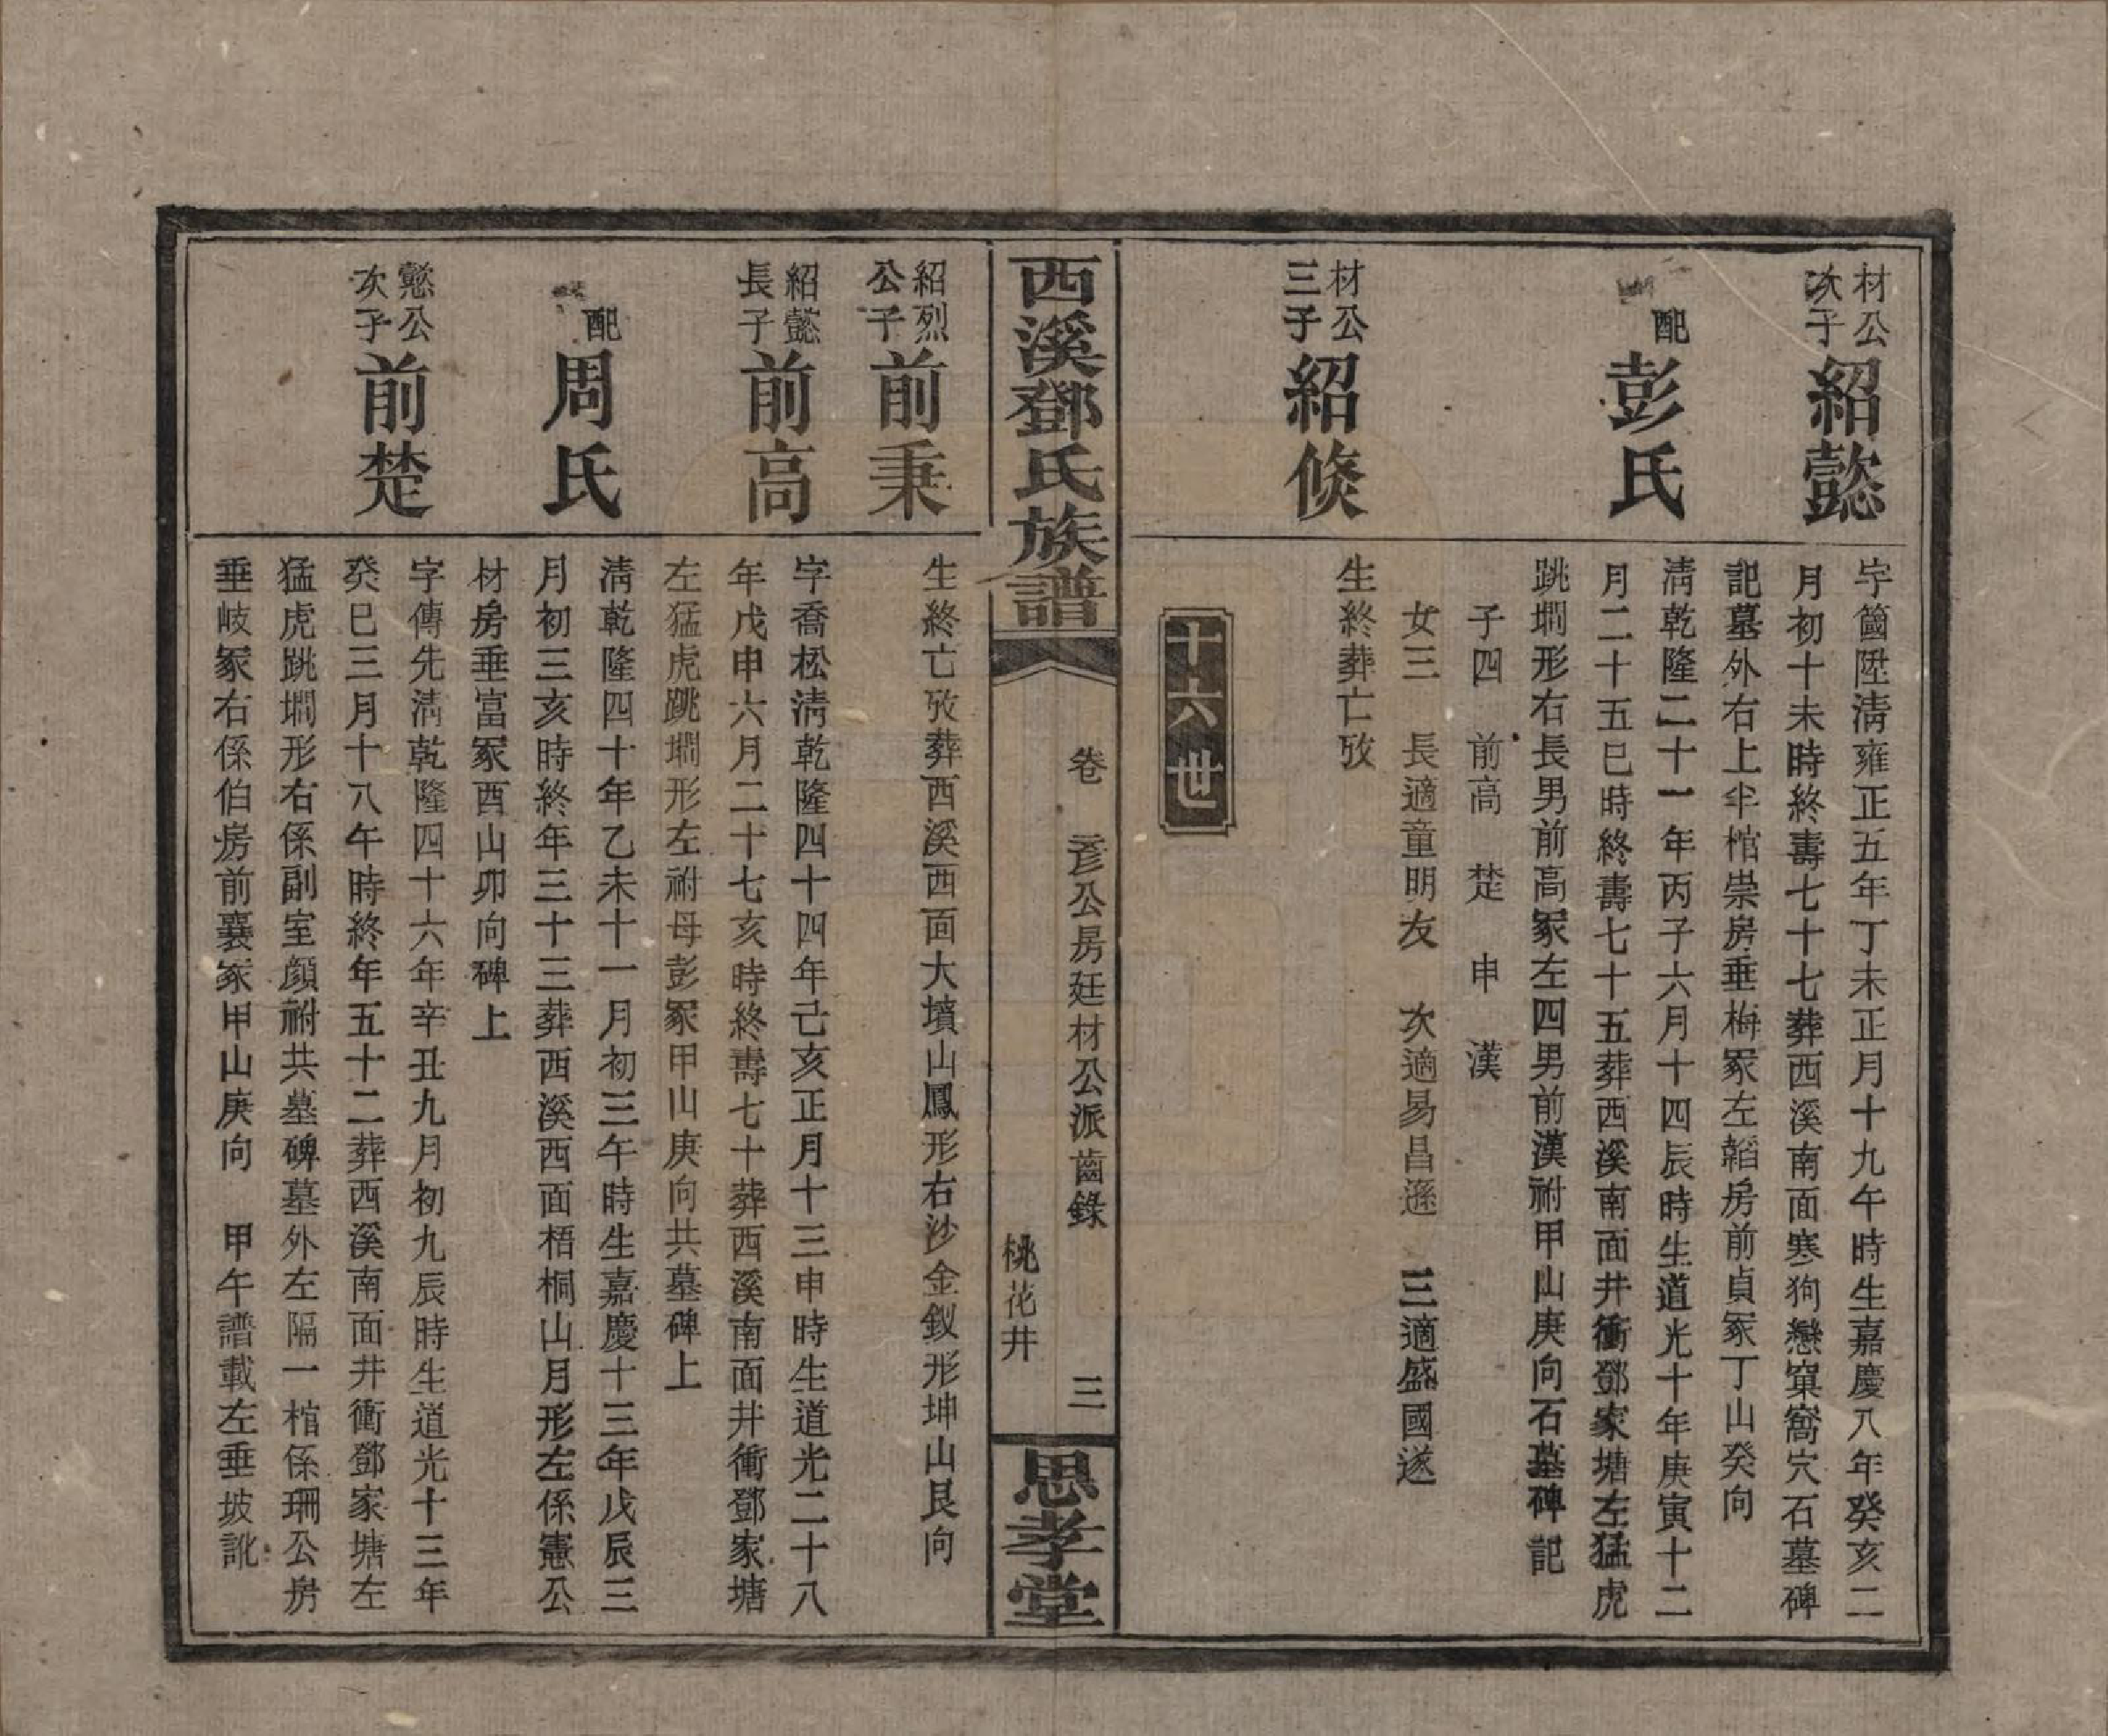 材公
次子
紹懿
字籛陞清雍正五年丁未正月十九午時生嘉慶八年癸亥二
月初十未時終壽七十七葬西溪南面寒狗戀窠窩穴石墓碑
記墓外右上半棺崇房垂梅冢左韜房前貞冢丁山癸向
配
彭氏
清乾隆二十一年丙子六月十四辰時生道光十年庚寅十二
月二十五巳時終壽七十五葬西溪南面井衝鄧家塘左猛虎
跳墹形右長男前高冢左四男前漢祔甲山庚向石墓碑記
子四 前高 楚 申 漢
女三 長適童明友 次適易昌遜 三適盛國遂
材公
三子
紹倐
生終葬亡攷
十六世
西溪鄧氏族譜
卷 彥公房廷材公派齒錄 三
桃花井
思孝堂
紹烈
公子
前秉
生終亡攷葬西溪西面大墳山鳳形右沙金釵形坤山艮向
紹懿
長子
前高
字喬松清乾隆四十四年己亥正月十三申時生道光二十八
年戊申六月二十七亥時終壽七十葬西溪南面井衝鄧家塘
左猛虎跳墹形左祔母彭冢甲山庚向共墓碑上
配
周氏
清乾隆四十年乙未十一月初三午時生嘉慶十三年戊辰三
月初三亥時終年三十三葬西溪西面梧桐山月形左係憲公
材房垂富冢酉山卯向碑上
懿公
次子
前楚
字傳先清乾隆四十六年辛丑九月初九辰時生道光十三年
癸巳三月十八午時終年五十二葬西溪南面井衝鄧家塘左
猛虎跳墹形右係副室顏祔共墓碑墓外左隔一棺係珊公房
垂岐冢右係伯房前襄冢甲山庚向 甲午譜載左垂坡訛